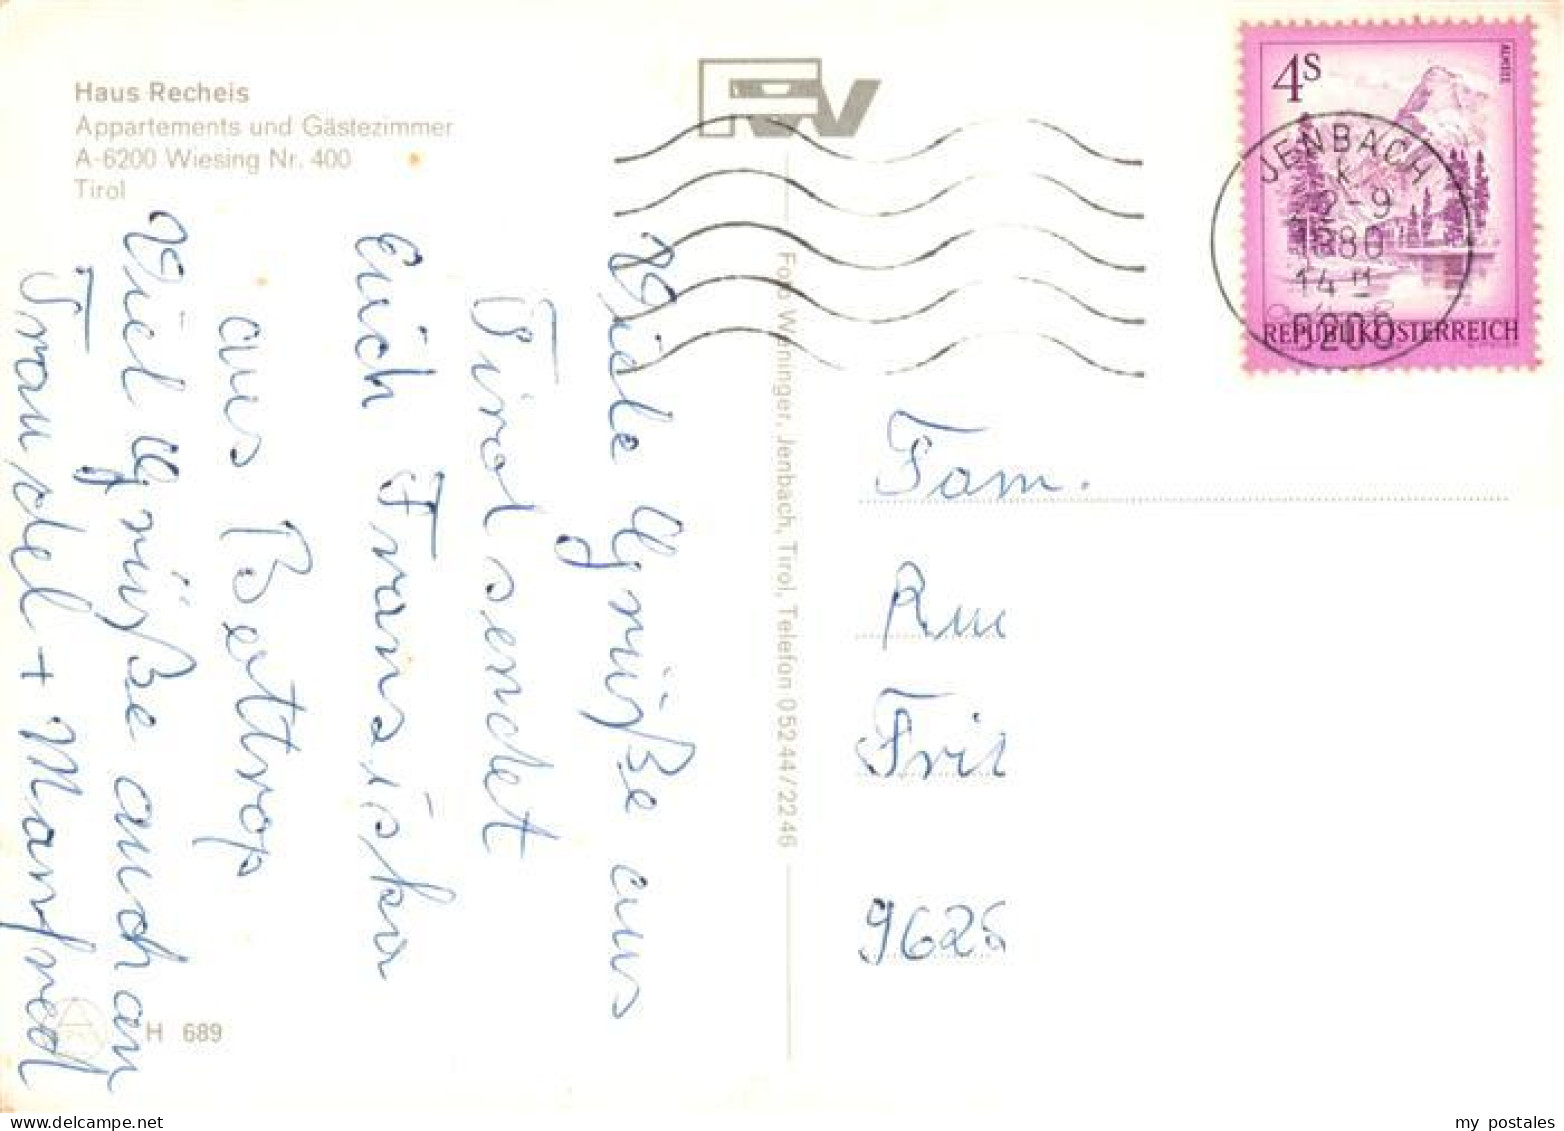 Haus Recheis
Appartements und Gästezimmer
A-6200 Wiesing Nr. 400
Tirol
Viele Grüße aus
Tirol sendet
Euch Fransiska
aus Bottrop
Viel Grüße auch an
Traudel + Manfred
H 689
Foto Weninger, Jenbach, Tirol, Telefon 05244/2246
4S
ALMSEE
REPUBLIK ÖSTERREICH
JENBACH
k
2-9
1980
14-
6200
Fam.
9626
my postales